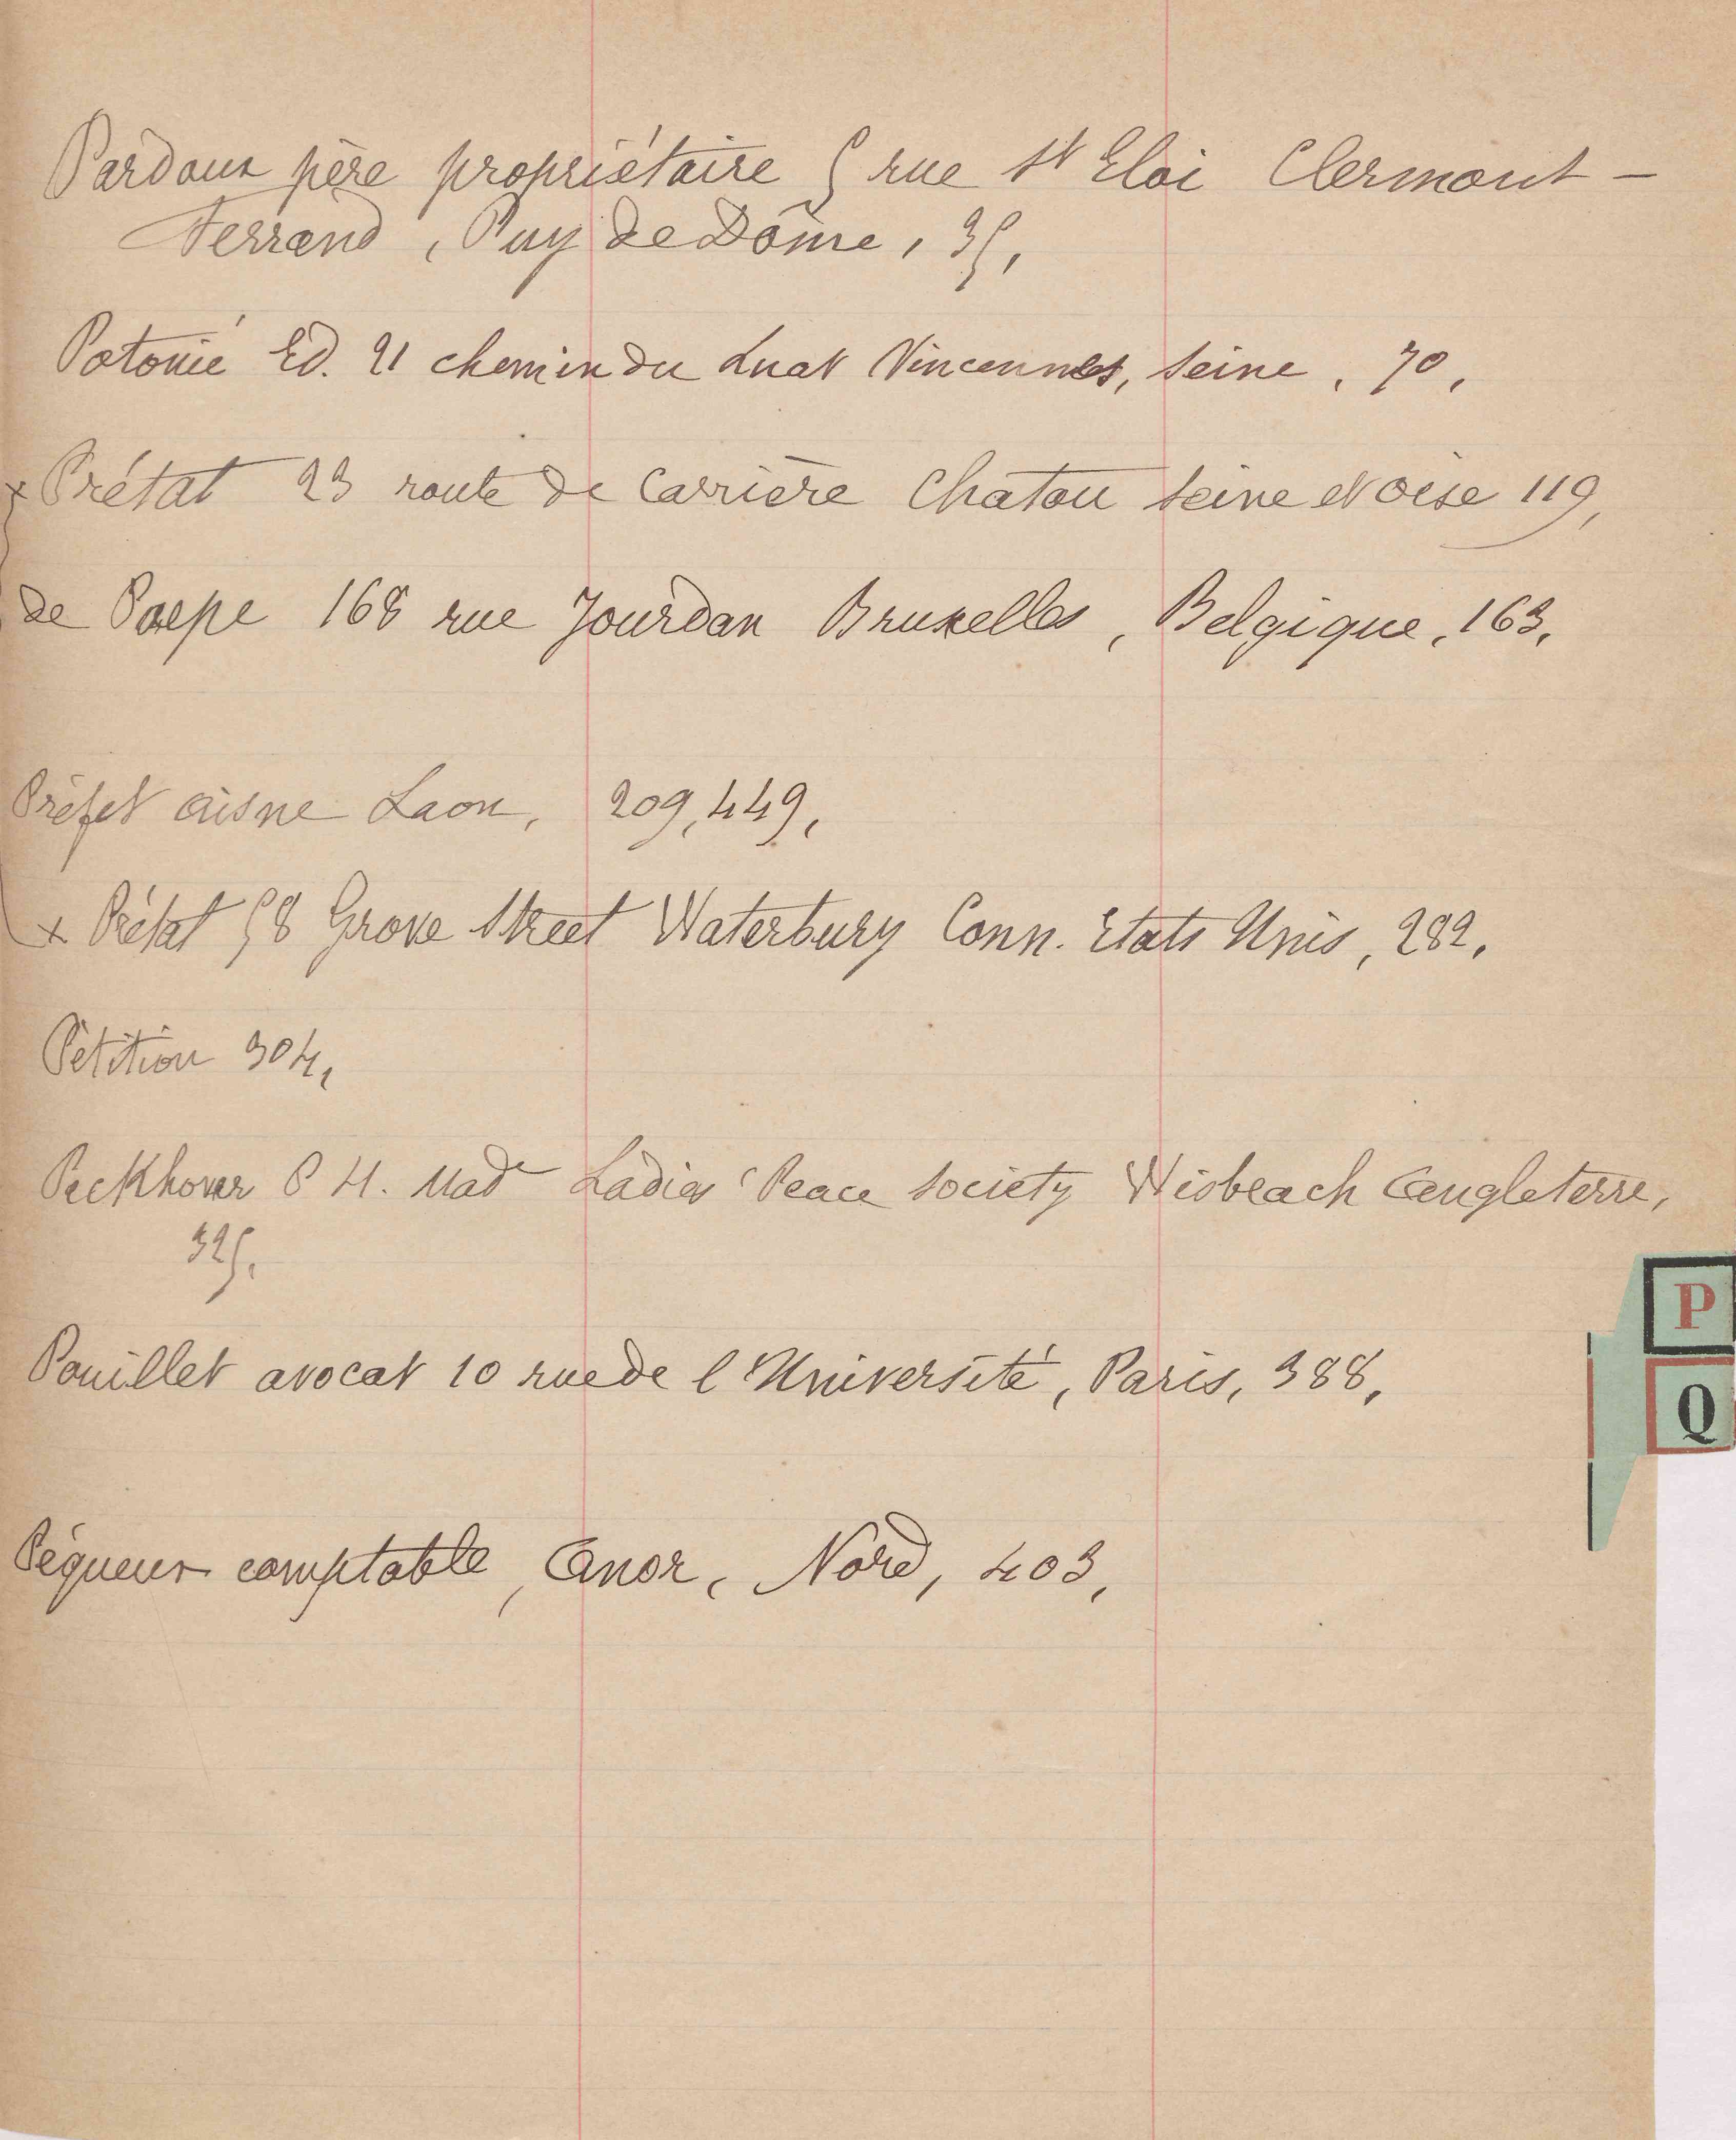 Pardoux père propriétaire 5 rue St Eloi Clermont-
Ferrand, Puy de Dôme, 35,
Potonié Ed. 21 chemin du Luat Vincennes, Seine, 70,
x Prétat 23 route de Carrière Chatou Seine et Oise 119,
de Paepe 168 rue Jourdan Bruxelles, Belgique, 163,
Préfet Aisne Laon, 209, 449,
x Prétat 58 Grove Street Waterbury Conn. Etats Unis, 282,
Pétition 304,
Peckhover P H. Made Ladies Peace Society Wisbeach Angleterre,
325,
Pouillet avocat 10 rue de l'Université, Paris, 388,
Péqueur comptable, Anor, Nord, 403,
P
Q